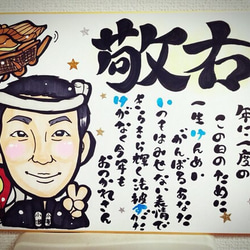 敬右
年に一度の
この日のために
一生けんめい
がんばるあなた
いつもはみせない表情で
きらきらと輝く法被すがた
けがなく今年も
おつかれさん